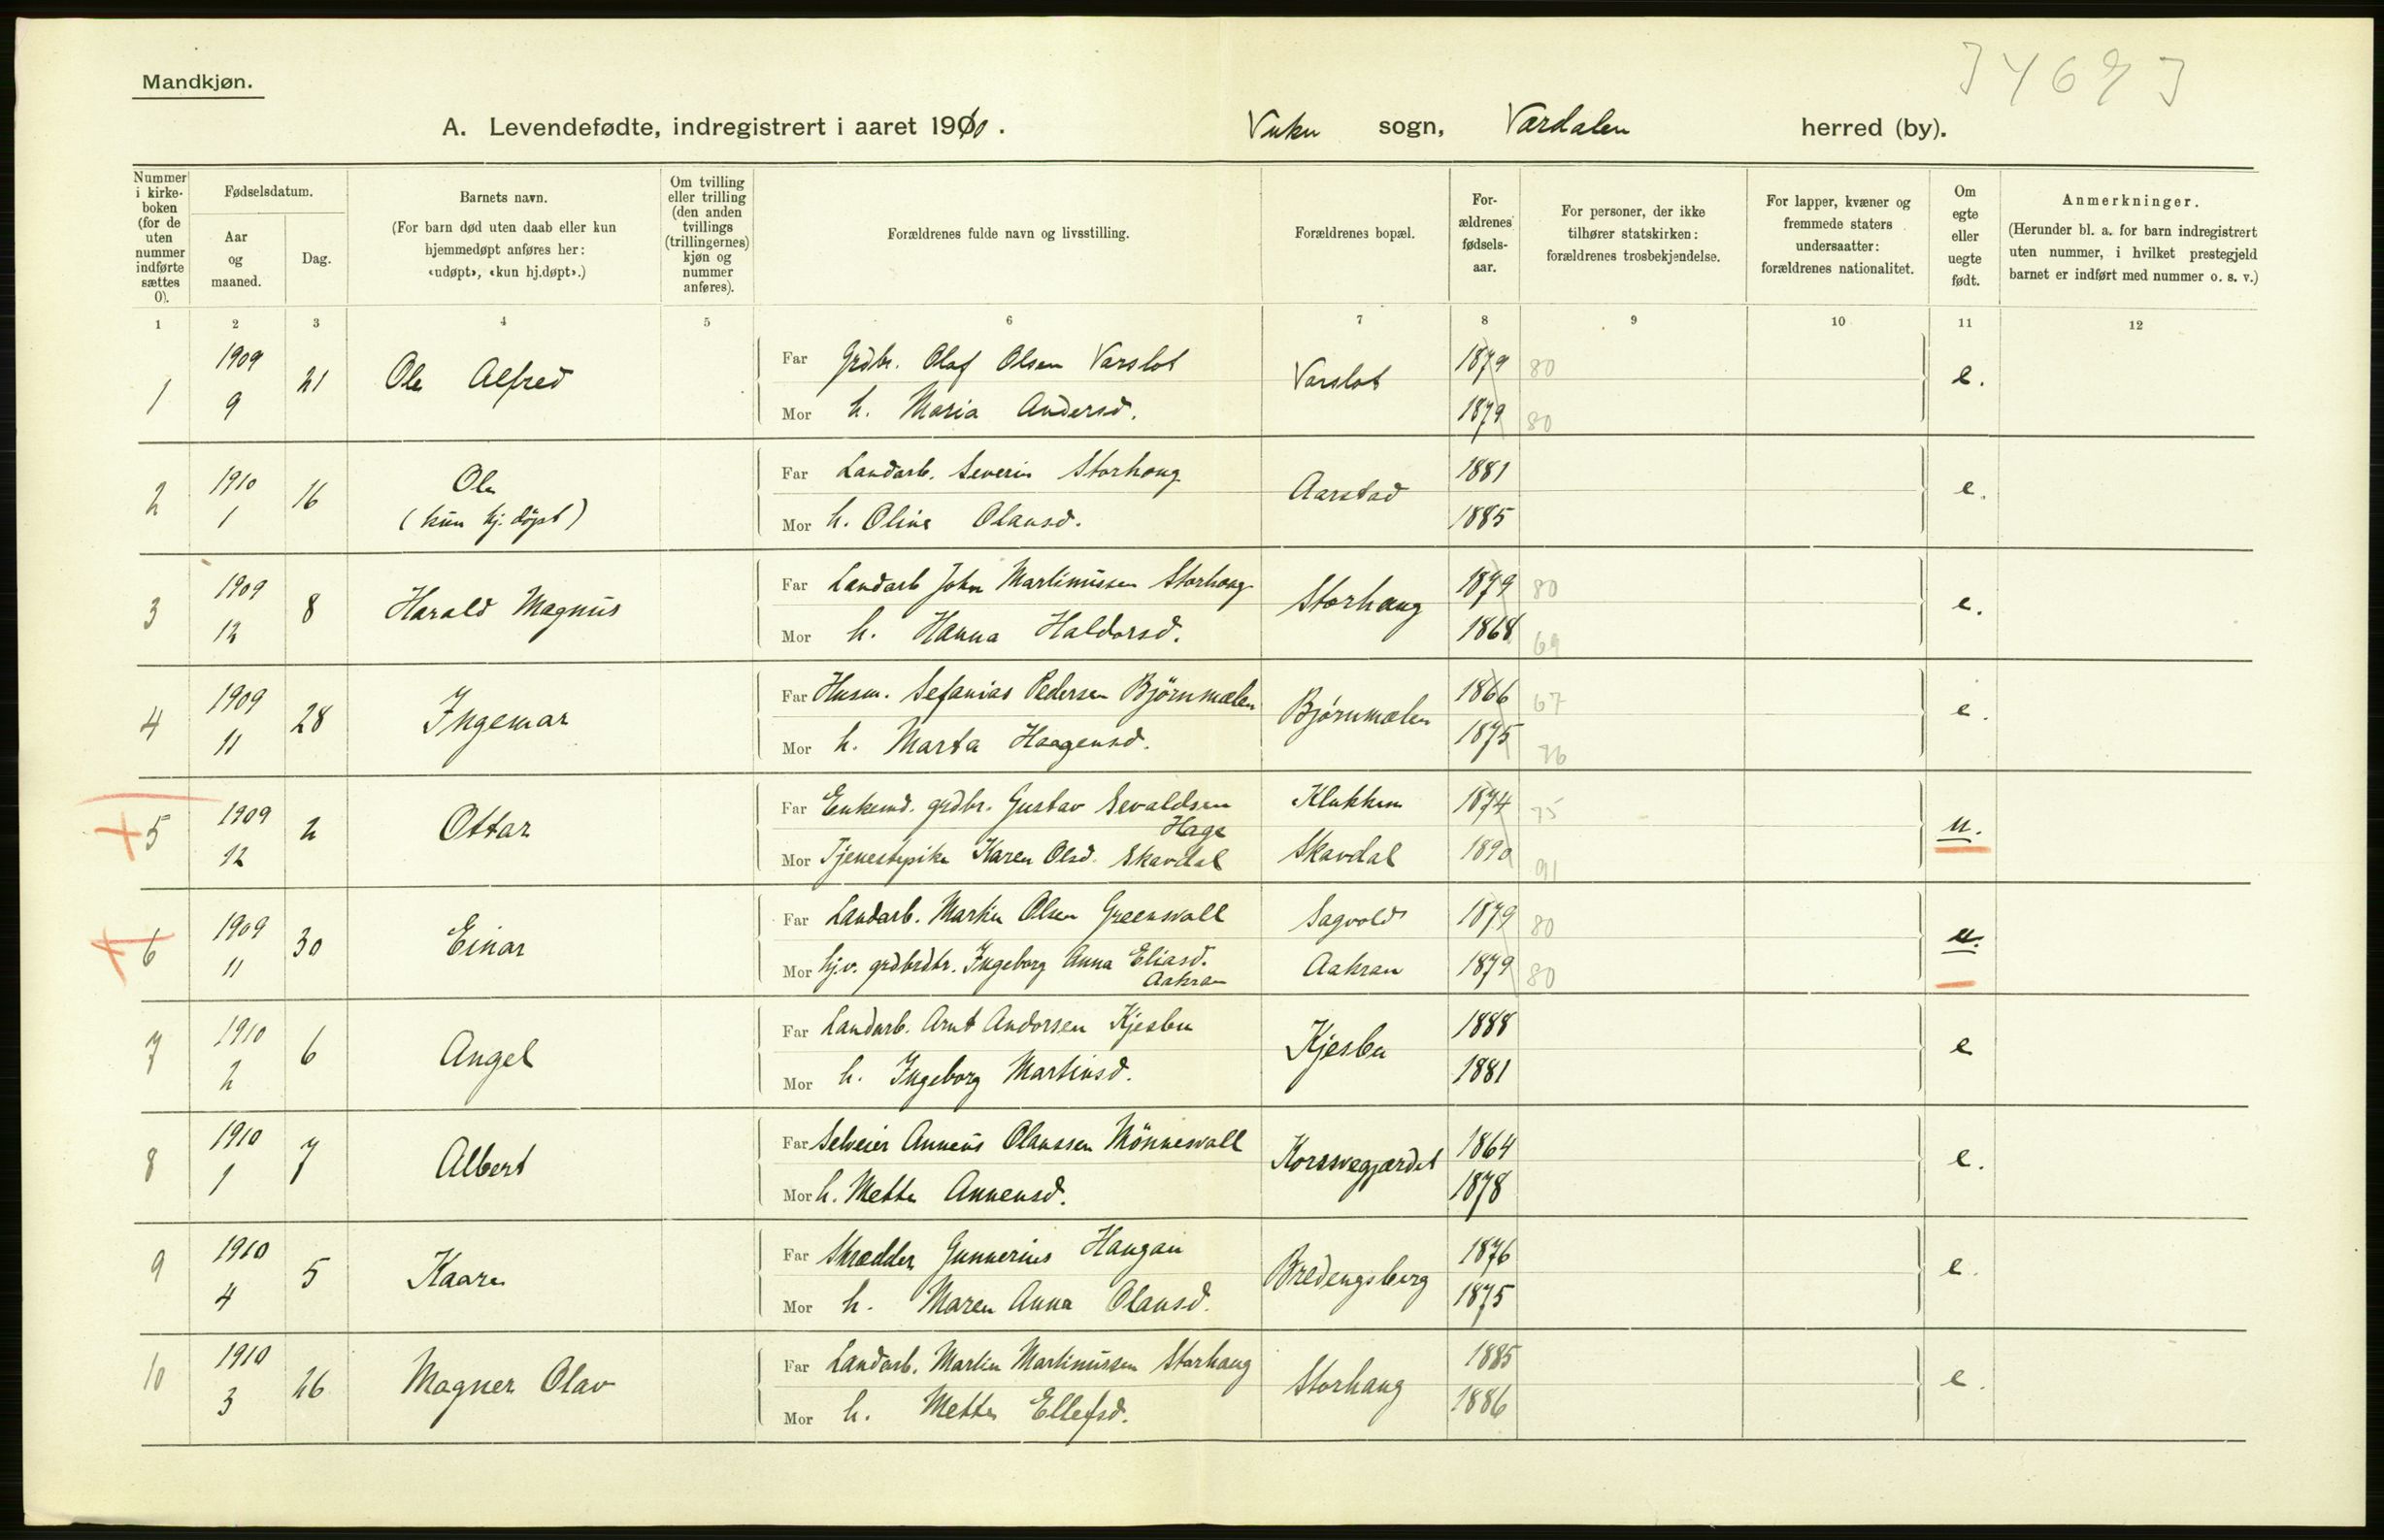 Mandkjøn.
A. Levendefødte, indregistrert i aaret 1910. Vuku sogn, Værdalen herred (by).
Nummer i kirkeboken (for de uten nummer indførte sættes 0).
Fødselsdatum.
Aar og maaned.
Dag.
Barnets navn.
(For barn død uten daab eller kun hjemmedøpt anføres her: «udøpt», «kun hj.døpt».)
Om tvilling eller trilling (den anden tvillings (trillingernes) kjøn og nummer anføres).
Forældrenes fulde navn og livsstilling.
Forældrenes bopæl.
Forældrenes fødselsaar.
For personer, der ikke tilhører statskirken: forældrenes trosbekjendelse.
For lapper, kvæner og fremmede staters undersaatter: forældrenes nationalitet.
Om egte eller uegte født.
Anmerkninger.
(Herunder bl. a. for barn indregistrert uten nummer, i hvilket prestegjeld barnet er indført med nummer o. s. v.)
1 2 3 4 5 6 7 8 9 10 11 12
1 1909 9 21 Ole Alfred
Far Grdbr. Olaf Olsen Varslot Varslot 1879 80 e.
Mor h. Maria Andersd. 1879 80
2 1910 1 16 Ole
(kun hj. døpt)
Far Landarb. Severin Storhaug Aarstad 1881 e.
Mor h. Oline Olausd. 1885
3 1909 12 8 Harald Magnus
Far Landarb John Martinussen Storhaug Storhaug 1879 80 e.
Mor h. Hanna Haldorsd. 1868 69
4 1909 11 28 Ingemar
Far Husm. Sefanias Pedersen Bjørnmælen Bjørnmælen 1866 67 e.
Mor h. Marta Haagensd. 1875 76
5 1909 12 2 Ottar
Far Enkemd. grdbr. Gustav Sevaldsen Hage Klukken 1874 75 u.
Mor Tjenestepike Karen Olsd. Skavdal Skavdal 1890 91
6 1909 11 30 Einar
Far Landarb. Martin Olsen Greensvall Sagvold 1879 80 u.
Mor hj.v. grdbrdtr. Ingeborg Anna Eliasd. Aakran Aakran 1879 80
7 1910 2 6 Angel
Far Landarb. Arnt Andorsen Kjesbu Kjesbu 1888 e
Mor h. Ingeborg Martinsd. 1881
8 1910 1 7 Albert
Far Selveier Anneus Olaussen Mönnesvall Korssvegjærdet 1864 e.
Mor h. Mette Annensd. 1878
9 1910 4 5 Kaare
Far Skrædder Gunnerius Haugan Bredengsberg 1876 e.
Mor h. Maren Anna Olausd. 1875
10 1910 3 26 Magner Olav
Far Landarb. Martin Martinussen Storhaug Storhaug 1885 e.
Mor h. Mette Ellefsd. 1886